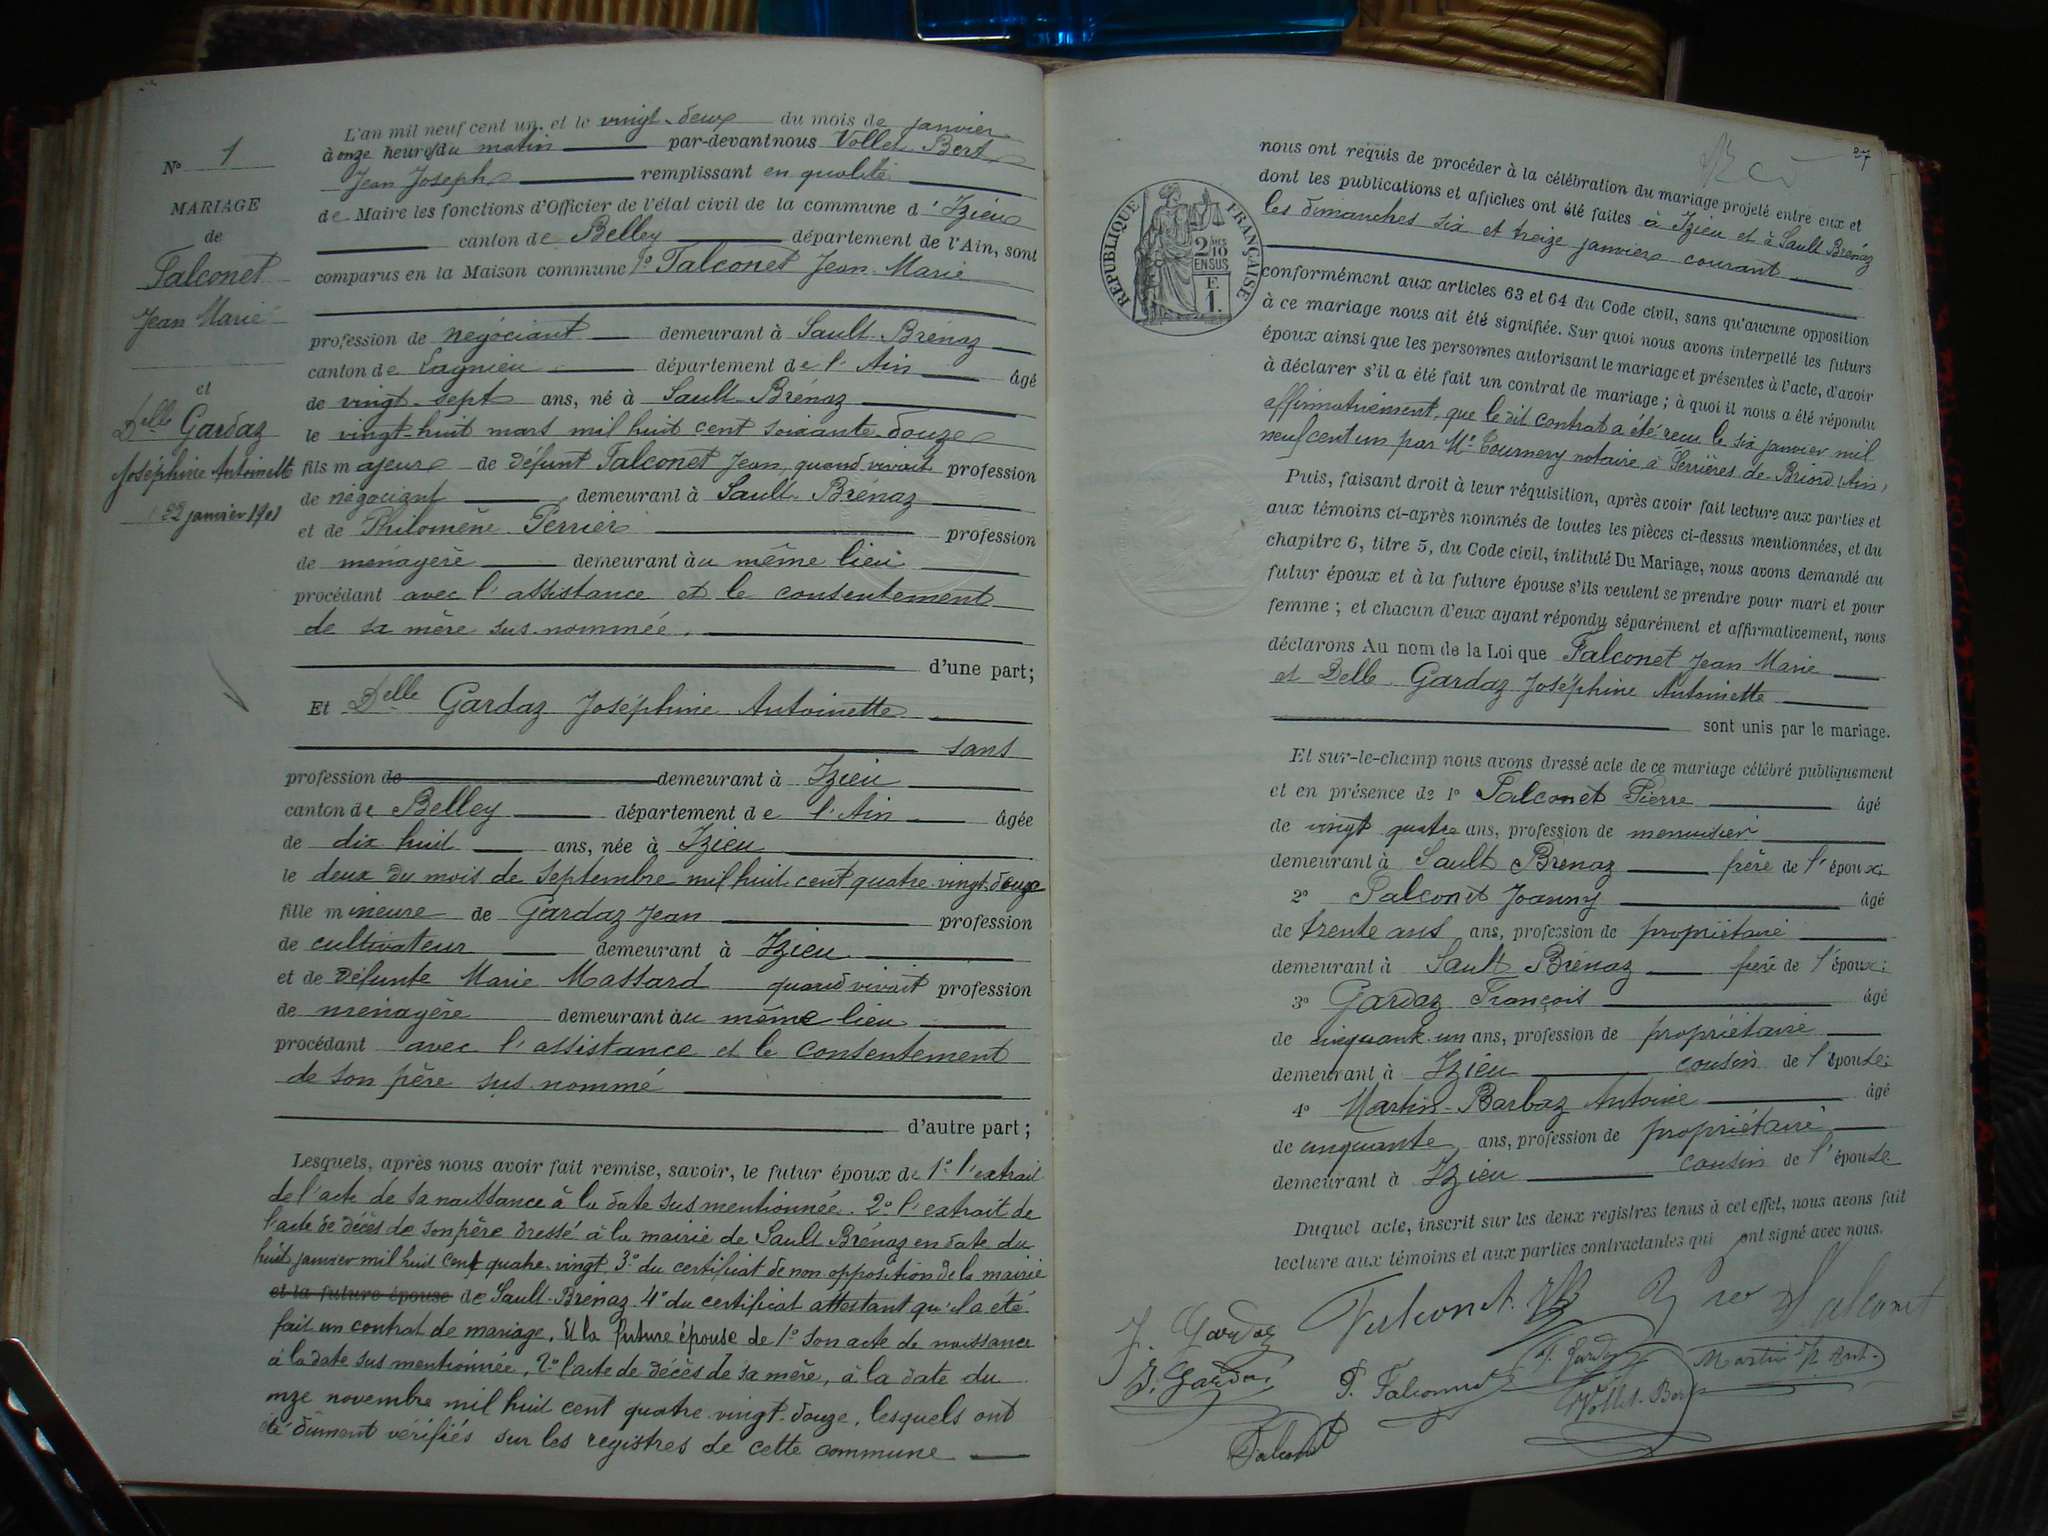 N° 1
MARIAGE
de
Falconet
Jean Marie
et
Delle Gardaz
Joséphine Antoinette
22 janvier 1901
L'an mil neuf cent un et le vingt-deux du mois de janvier
à onze heures du matin par-devant nous Vollet-Bert
Jean Joseph remplissant en qualité
de Maire les fonctions d'Officier de l'état civil de la commune d'Izieu
canton de Belley département de l'Ain, sont
comparus en la Maison commune 1° Falconet Jean-Marie
profession de négociant demeurant à Sault-Brénaz
canton de Lagnieu département de l'Ain âgé
de vingt-sept ans, né à Sault-Brénaz
le vingt-huit mars mil huit cent soixante-douze
fils majeur de défunt Falconet Jean, quand vivait profession
de négociant demeurant à Sault-Brénaz
et de Philomène Perrier profession
de ménagère demeurant au même lieu
procédant avec l'assistance et le consentement
de sa mère sus-nommée.
d'une part;
Et Delle Gardaz Joséphine Antoinette
sans
profession de demeurant à Izieu
canton de Belley département de l'Ain âgée
de dix huit ans, née à Izieu
le deux du mois de septembre mil huit cent quatre-vingt-douze
fille mineure de Gardaz Jean profession
de cultivateur demeurant à Izieu
et de défunte Marie Massard quand vivait profession
de ménagère demeurant au même lieu
procédant avec l'assistance et le consentement
de son père sus-nommé
d'autre part;
Lesquels, après nous avoir fait remise, savoir, le futur époux de 1° l'extrait
de l'acte de sa naissance à la date sus mentionnée. 2° l'extrait de
l'acte de décès de son père dressé à la mairie de Sault Brénaz en date du
huit janvier mil huit cent quatre-vingt 3° du certificat de non opposition de la mairie
et la future épouse de Sault-Brénaz 4° du certificat attestant qu'il a été
fait un contrat de mariage. Et la future épouse de 1° son acte de naissance
à la date sus mentionnée, 2° l'acte de décès de sa mère, à la date du
onze novembre mil huit cent quatre-vingt-douze, lesquels ont
été dûment vérifiés sur les registres de cette commune
27
RÉPUBLIQUE FRANÇAISE
2/10
EN SUS
F.
1.
nous ont requis de procéder à la célébration du mariage projeté entre eux et
dont les publications et affiches ont été faites à Izieu et à Sault-Brénaz
les dimanches six et treize janvier courant
conformément aux articles 63 et 64 du Code civil, sans qu'aucune opposition
à ce mariage nous ait été signifiée. Sur quoi nous avons interpellé les futurs
époux ainsi que les personnes autorisant le mariage et présentes à l'acte, d'avoir
à déclarer s'il a été fait un contrat de mariage; à quoi il nous a été répondu
affirmativement, que le dit contrat a été reçu le six janvier mil
neuf cent un par Me Tournery notaire à Serrières-de-Briord (Ain)
Puis, faisant droit à leur réquisition, après avoir fait lecture aux parties et
aux témoins ci-après nommés de toutes les pièces ci-dessus mentionnées, et du
chapitre 6, titre 5, du Code civil, intitulé Du Mariage, nous avons demandé au
futur époux et à la future épouse s'ils veulent se prendre pour mari et pour
femme; et chacun d'eux ayant répondu séparément et affirmativement, nous
déclarons Au nom de la Loi que Falconet Jean Marie
et Delle Gardaz Joséphine Antoinette
sont unis par le mariage.
Et sur-le-champ nous avons dressé acte de ce mariage célébré publiquement
et en présence de 1° Falconet Pierre âgé
de vingt quatre ans, profession de menuisier
demeurant à Sault Brénaz frère de l'époux;
2° Falconet Joanny âgé
de trente ans ans, profession de propriétaire
demeurant à Sault Brénaz frère de l'époux;
3° Gardaz François âgé
de cinquante-un ans, profession de propriétaire
demeurant à Izieu cousin de l'épouse;
4° Martin-Barbaz Antoine âgé
de cinquante ans, profession de propriétaire
demeurant à Izieu cousin de l'épouse
Duquel acte, inscrit sur les deux registres tenus à cet effet, nous avons fait
lecture aux témoins et aux parties contractantes qui ont signé avec nous.
J. Gardaz Falconet Falconet
J. Gardaz P. Falconnet F. Gardaz Martin Ant.
Vollet-Bert
Falconet